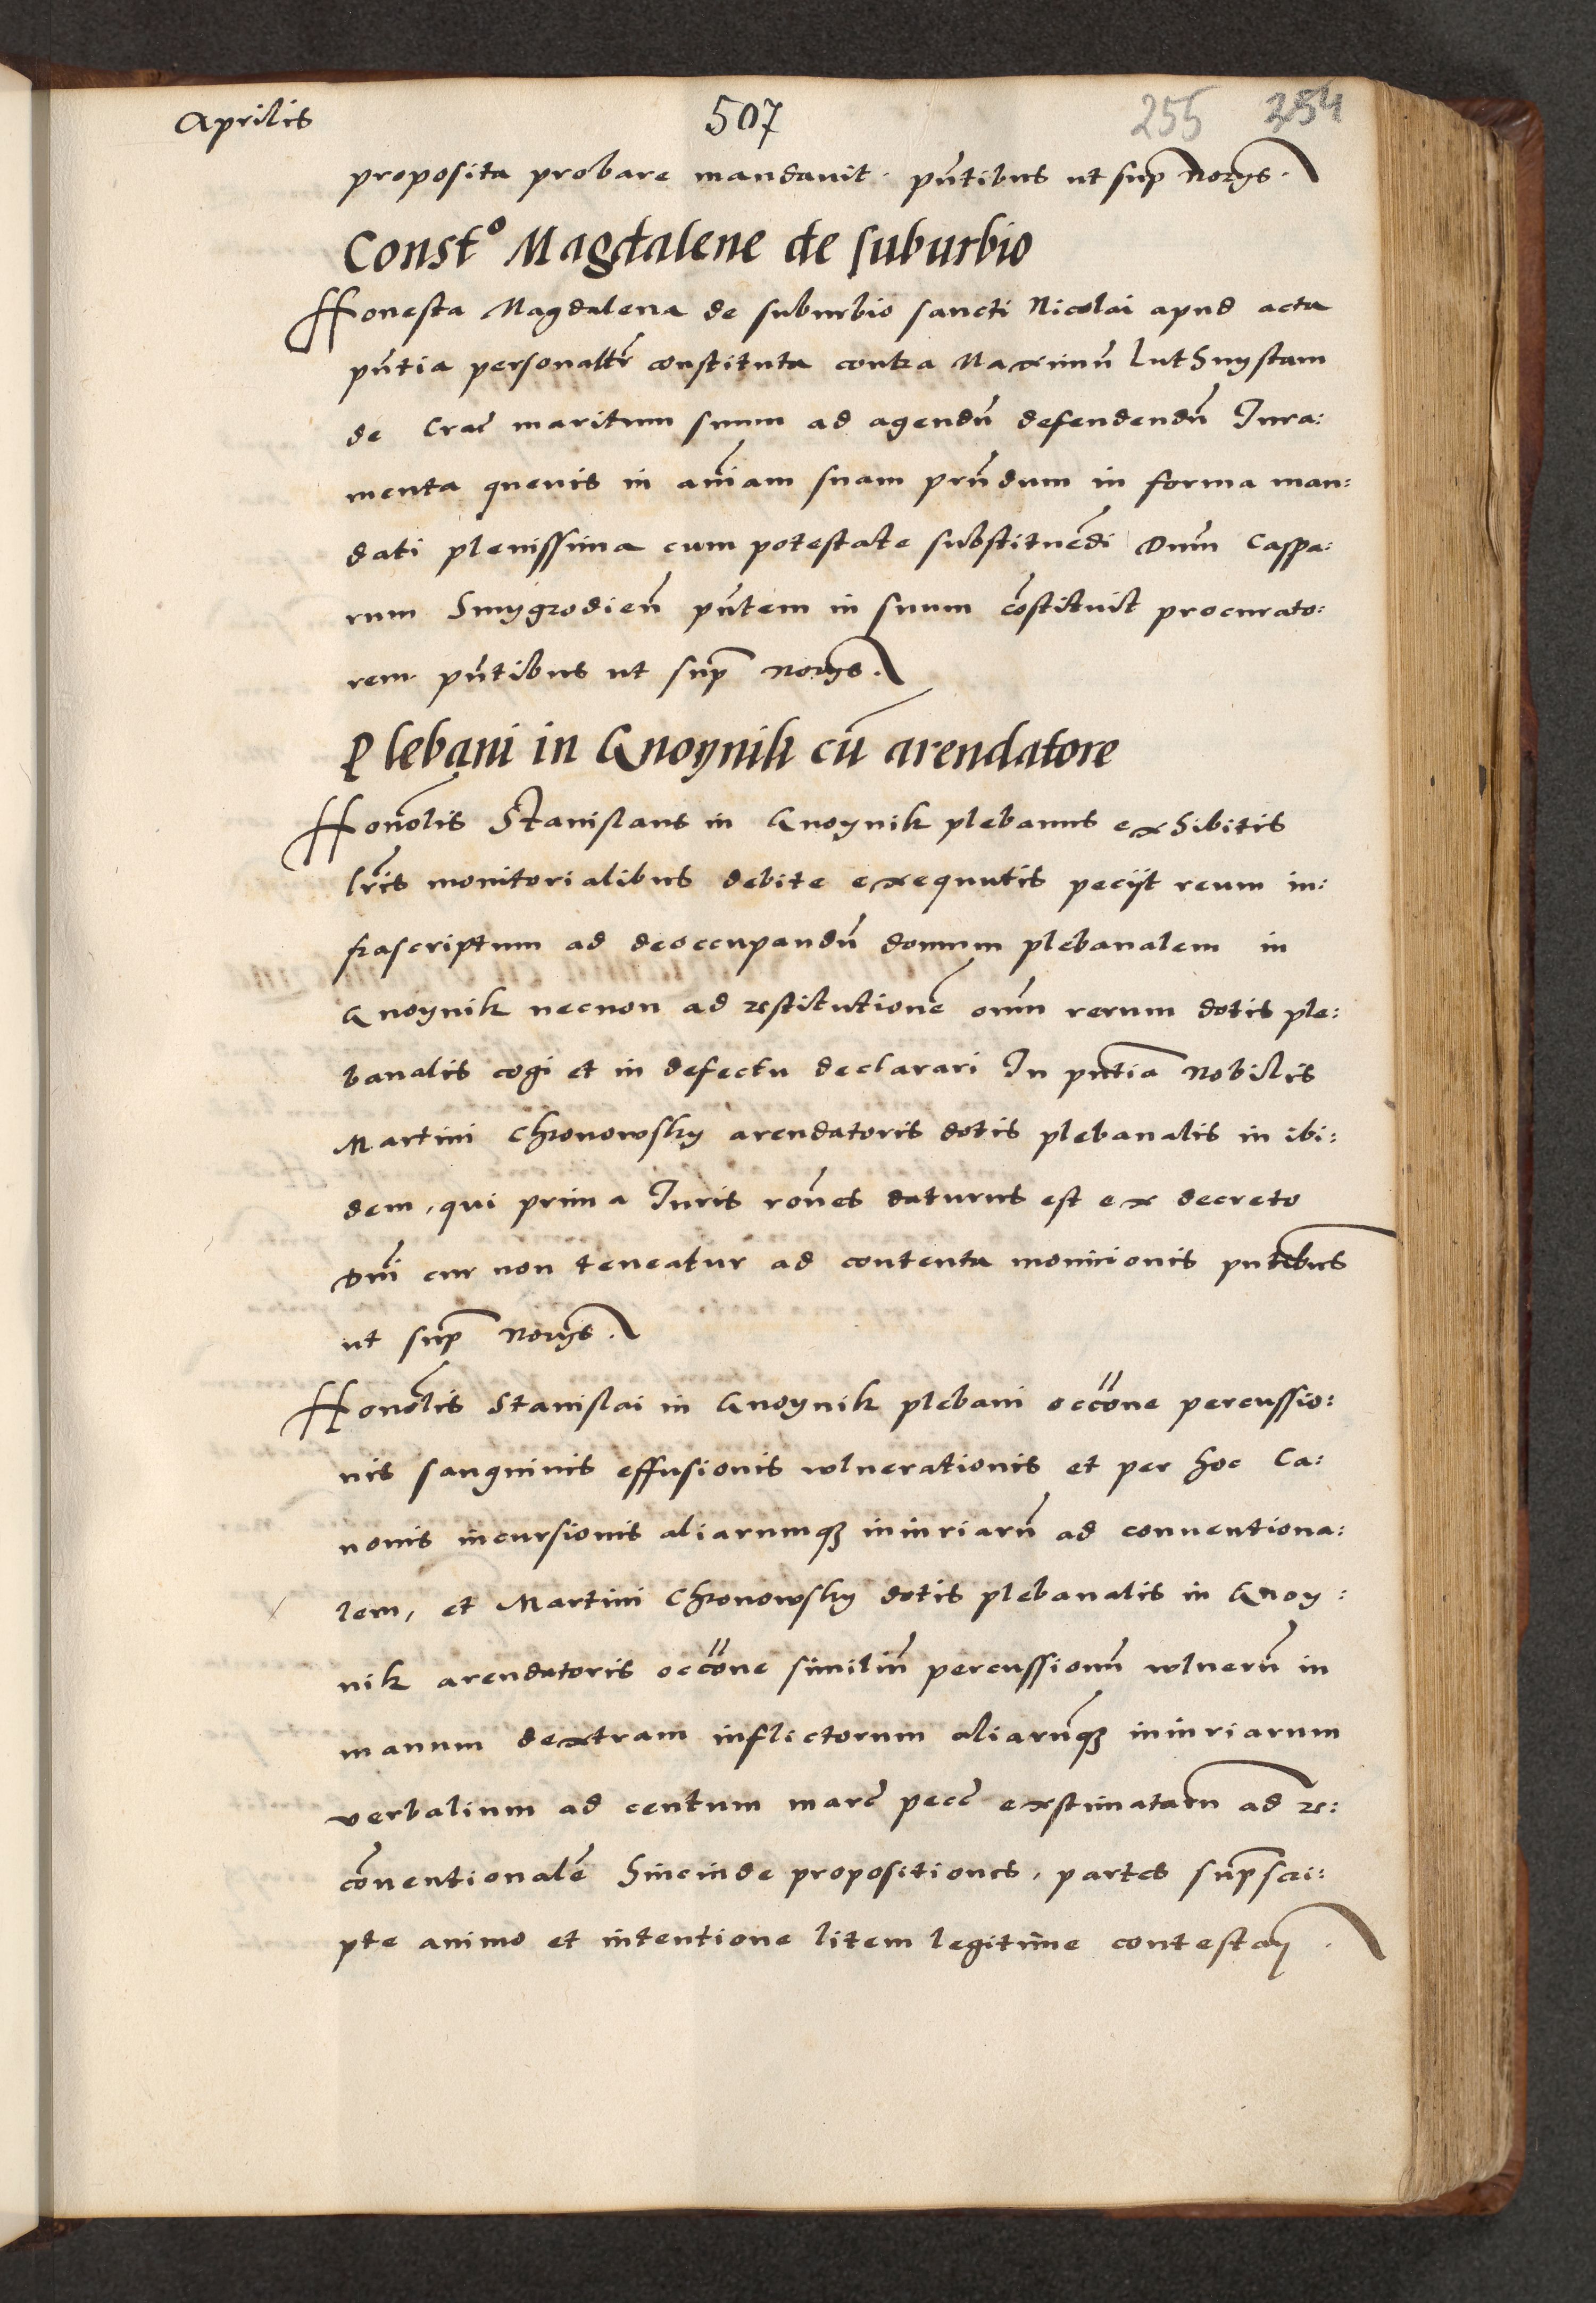 Aprilis 507 255 354
proposita probare mandauit. pn̄tibus ut sup̄ norijs.
Constᵒ Magdalene de suburbio
Honesta Magdalena de suburbio sancti Nicolai apud acta
pn̄tia personalitr̄ constituta contra Maximū Luthnystam
de Crac̄ maritum suum ad agendū defendendū Iura:
menta queuis in aīam suam prn̄dum in forma man:
dati plenissima cum potestate substituēdi Dnūm Caspa:
rum Smygrodieñ pn̄tem in suum cōstituit procurato:
rem pn̄tibus ut sup̄ norijs.
Plebani in Gnoynik cū arendatore
Honōlis Stanislaus in Gnoynik plebanus exhibitis
lr̄is monitorialibus debite exequutis pecijt reum in:
frascriptum ad deoccupandū domum plebanalem in
Gnoynik necnon ad restitutionē om̄m rerum dotis ple:
banalis cogi et in defectu declarari In pn̄tia Nobilis
Martini Chronowsky arendatoris dotis plebanalis in ibi:
dem, qui prima Iuris rōnes daturus est ex decreto
Dn̄i cur non teneatur ad contenta monicionis pn̄tebus
ut sup̄ Norijs.
Honōlis Stanislai in Gnoynik plebani occōne percussio:
nis sanguinis effusionis wlnerationis et per hoc Ca:
nonis incursionis aliarumqꝫ iniuriarū ad conuentiona:
lem, et Martini Chronowsky dotis plebanalis in Gnoy:
nik arendatoris occōne similiū percussionū wlnerū in
manum dextram inflictorum aliarūqꝫ iniuriarum
verbalium ad centum marc̄ pecc̄ exstimatarū ad re:
cōuentionalē hincinde propositiones, partes sup̄scri:
pte animo et intentione litem legitime contestan̄